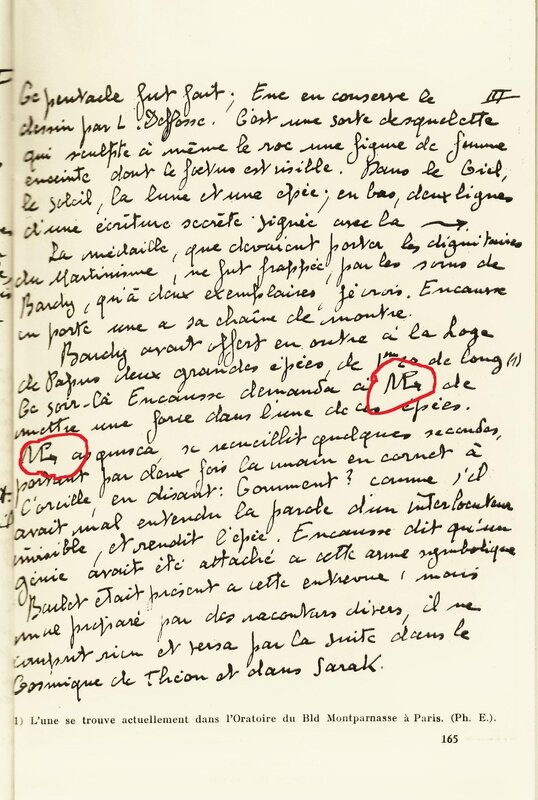 Ce pentacle fut fait ; Enc en conserve le III
dessin par L. Deffosse. C'est une sorte de squelette
qui sculpte à même le roc une figure de femme
enceinte dont le fœtus est visible. Dans le Ciel,
le soleil, la lune et une épée ; en bas, deux lignes
d'une écriture secrète signée avec la →.
La médaille, que devaient porter les dignitaires
du Martinisme, ne fut frappée, par les soins de
Bardy, qu'à deux exemplaires, je crois. Encausse
en porte une a sa chaîne de montre.
Bardy avait offert en outre à la Loge
de Papus deux grandes épées, de de long (1)
Ce soir-là Encausse demanda à de
mettre une force dans l'une de ces épées.
acquiesça, se recueillit quelques secondes,
portant par deux fois la main en cornet à
l'oreille, en disant : Comment ? comme s'il
avait mal entendu la parole d'un interlocuteur
invisible, et rendit l'épée. Encausse dit qu'un
génie avait été attaché a cette arme symbolique
Barlet était présent a cette entrevue ; mais
mal préparé par des racontars divers, il ne
comprit rien et versa par la suite dans le
Cosmique de Théon et dans Sarak.
1) L'une se trouve actuellement dans l'Oratoire du Bld Montparnasse à Paris. (Ph. E.).
165